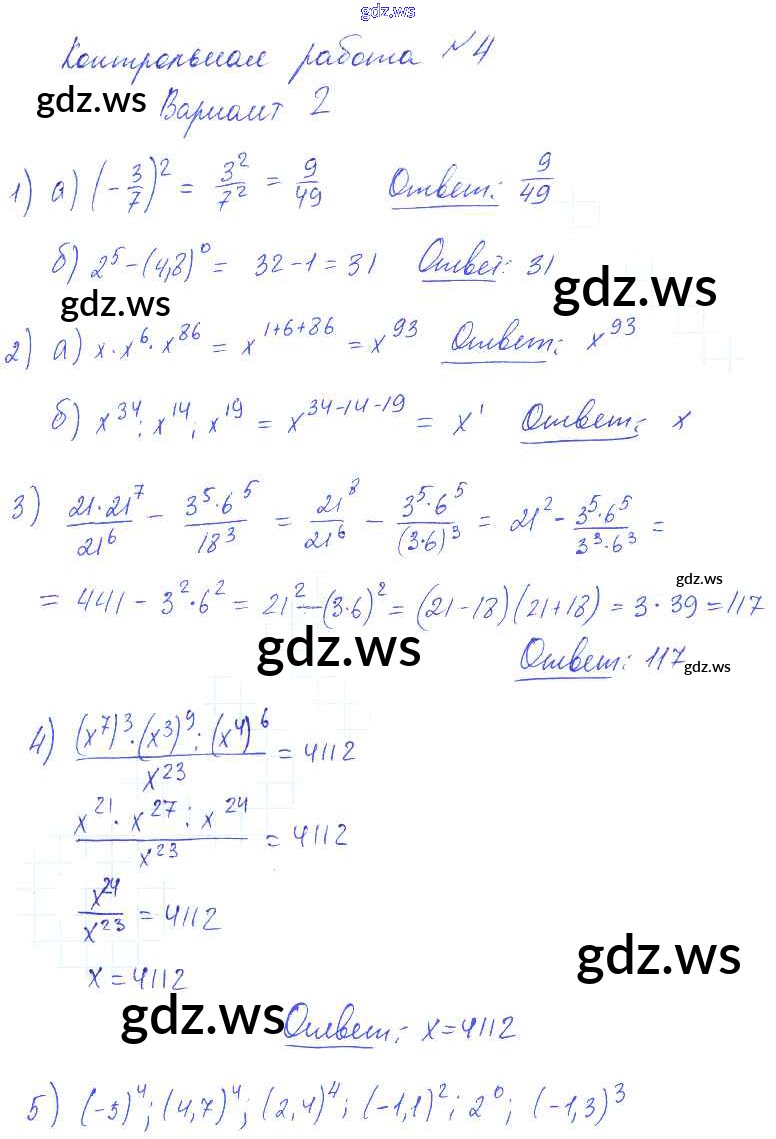 gdz.ws
Контрольная работа №4
gdz.ws
Вариант 2
1) а) (-3/7)² = 3²/7² = 9/49 Ответ: 9/49
б) 2⁵-(4,8)⁰ = 32-1=31 Ответ: 31
gdz.ws
gdz.ws
2) а) x·x⁶·x⁸⁶ = x¹⁺⁶⁺⁸⁶ = x⁹³ Ответ: x⁹³
б) x³⁴:x¹⁴:x¹⁹ = x³⁴⁻¹⁴⁻¹⁹ = x¹ Ответ: x
3) 21·21⁷/21⁶ - 3⁵·6⁵/18³ = 21⁸/21⁶ - 3⁵·6⁵/(3·6)³ = 21² - 3⁵·6⁵/3³·6³ =
gdz.ws
= 441 - 3²·6² = 21²-(3·6)² = (21-18)(21+18) = 3·39=117
gdz.ws
Ответ: 117
gdz.ws
4) (x⁷)³·(x³)⁹:(x⁴)⁶/x²³ = 4112
x²¹·x²⁷:x²⁴/x²³ = 4112
x²⁴/x²³ = 4112
gdz.ws
x=4112
gdz.ws
Ответ: x=4112
5) (-5)⁴; (4,7)⁴; (2,4)⁴; (-1,1)²; 2⁰; (-1,3)³